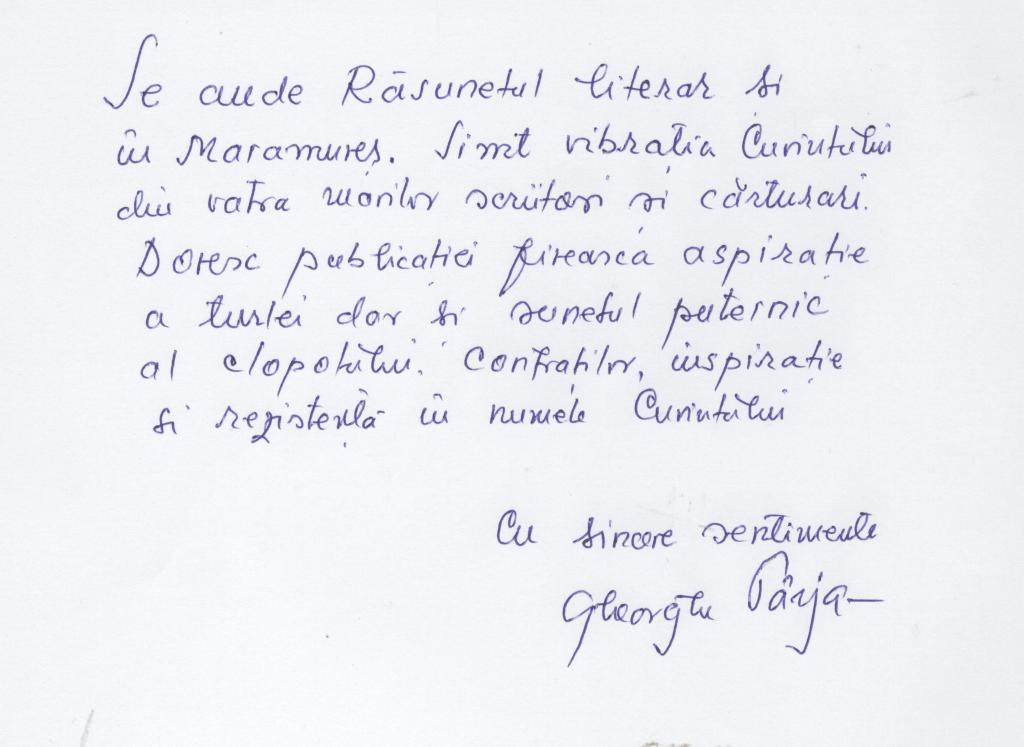 Se aude Răsunetul literar si
în Maramureș. Simt vibrația Cuvintului
din vatra marilor scriitori și cărturari.
Doresc publicației fireasca aspirație
a turlei dar si sunetul puternic
al clopotului. Confraților, inspirație
si rezistență în numele Cuvintului
Cu sincere sentimente
Gheorghe Pârja